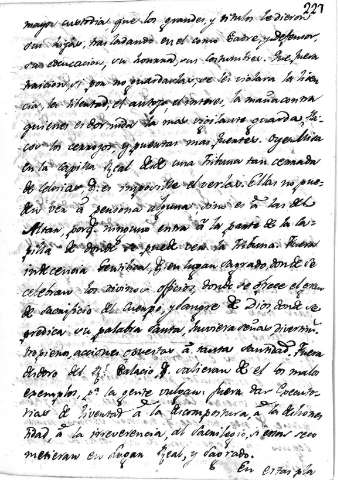 227
mayor custodia que los grandes, y titulos le dieron
sus hijas, trasladando en el como Padre, y Defensor,
su educacion, su honrra, sus costumbres. Fue, fuera
traicion, si por no guardarlas, se les violara la licen
cia, la libertad, el antojo, el interes, la maña contra
quienes es dormida la mas vigilante guarda, fla-
cos los cerrojos, y puertas mas fuertes. Oyen Missa
en la Capilla Real desde una tribuna tan cerrada
de celosias q. es imposible el verlas. Ellas no pue-
den ver a persona alguna sino es a las del
Altar, porq. ninguno entra a la parte de la Ca-
pilla de donde se puede ver la tribuna. Fuera
indecencia Gentilica, q. en lugar sagrado, donde se
celebran los divinos officios, donde se ofrece el gran
de sacrificio del Cuerpo, y sangre de Dios, donde se
predica su palabra santa, huviera señas
acciones a tanta santidad. Fuera
del R.l Palacio q. salieran de el los malos
exemplos, p.a la gente vulgar: fuera dar Executo-
rias de livertad a la descompostura, a la deshones
tidad, a la irreverencia, al sacrilegio, si estas se co
metieran en lugar Real, y sagrado.
En esta pla